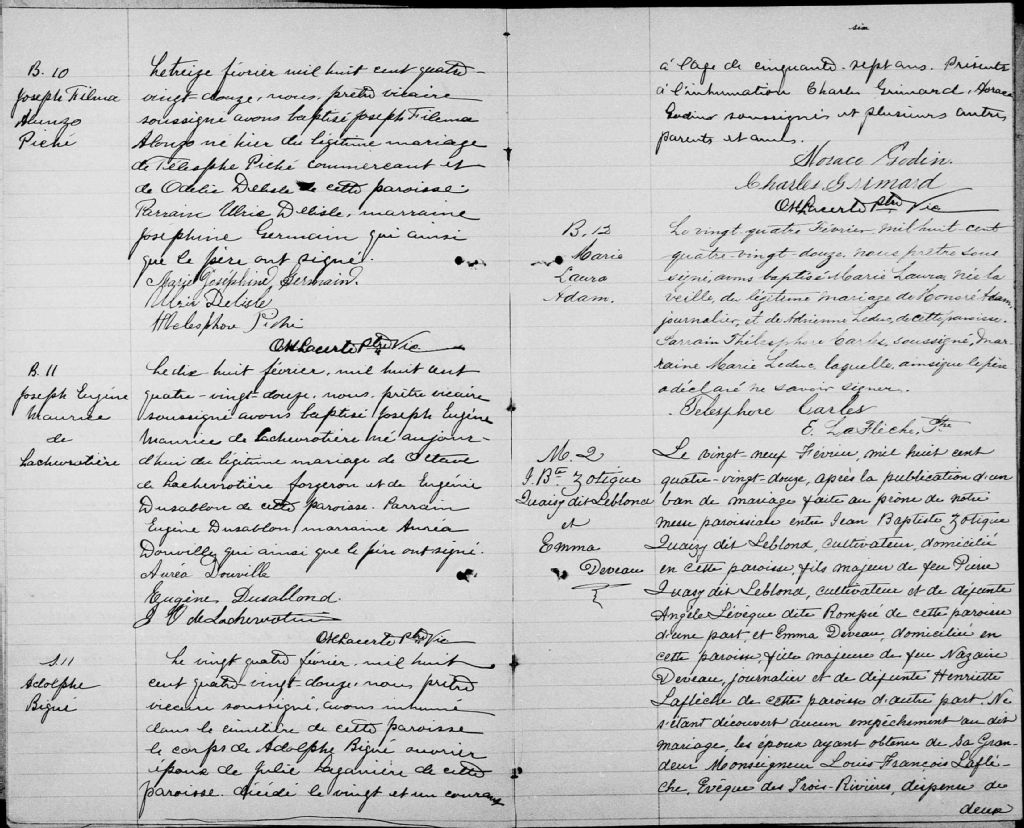 B. 10
Joseph Filma
Alonzo
Piché
Le treize février mil huit cent quatre-
vingt-douze, nous, prêtre vicaire
soussigné avons baptisé Joseph Filma
Alonzo né hier du légitime mariage
de Télesphe Piché commercant et
de Odelie Delisle de cette paroisse.
Parrain Ulric Delisle, marraine
Josephine Germain qui ainsi
que le père ont signé.
Marie Joséphine Germain.
Ulric Delisle
Thelesphore Piché
Lacerte Ptre Vic
B. 11
Joseph Eugène
Maurice
de
Lachevrotière
Le dix huit février, mil huit cent
quatre-vingt-douze, nous, prêtre vicaire
soussigné avons baptisé Joseph Eugène
Maurice de Lachevrotière né aujour-
d'hui du légitime mariage de Octave
de Lachevrotière forgeron et de Eugénie
Dusablon de cette paroisse. Parrain
Eugène Dusablon marraine Auréa
Douville qui ainsi que le père ont signé.
Auréa Douville
Eugène Dusablond.
J O de Lachevrotière
Lacerte Ptre Vic
S. 11
Adolphe
Bigué
Le vingt quatre février, mil huit
cent quatre-vingt-douze, nous prêtre
vicaire soussigné, avons inhumé
dans le cimetière de cette paroisse
le corps de Adolphe Bigué ouvrier
époux de Julie Laganière de cette
paroisse. décédé le vingt et un courant
six
à l'age de cinquante-sept ans. Présents
à l'inhumation Charles Grimard, Horace
Godin soussignés et plusieurs autres
parents et amis.
Horace Godin.
Charles Grimard
Lacerte Ptre Vic
B. 12
Marie
Laura
Adam.
Le vingt quatre Février mil huit cent
quatre-vingt-douze, nous prêtre sous
signé, avons baptisé Marie Laura, née la
veille, du légitime mariage de Honoré Adam,
journalier, et de Adrienne Leduc, de cette paroisse.
Parrain Thélesphore Carles, soussigné, mar
raine Marie Leduc, laquelle, ainsi que le père
a déclaré ne savoir signer.
Telesphore Carles
E. LaFlèche, Ptre
M. 2
J. Bte Zotique
Quaizy dit Leblond
et
Emma
Deveau
Le vingt-neuf Février, mil huit cent
quatre-vingt-douze, après la publication d'un
ban de mariage faite au prône de notre
messe paroissiale entre Jean Baptiste Zotique
Quaizy dit Leblond, cultivateur, domicilié
en cette paroisse, fils majeur de feu Pierre
Quazy dit Leblond, cultivateur et de défunte
Angèle Lévêque dite Rompré de cette paroisse
d'une part, et Emma Deveau, domiciliée en
cette paroisse, fille majeure de feu Nazaire
Deveau, journalier et de défunte Henriette
Laflèche de cette paroisse d'autre part. Ne
s'étant découvert aucun empêchement au dit
mariage, les époux ayant obtenu de Sa Gran-
deur Monseigneur Louis François Laflè-
che, Evêque des Trois-Rivières, dispense de
deux